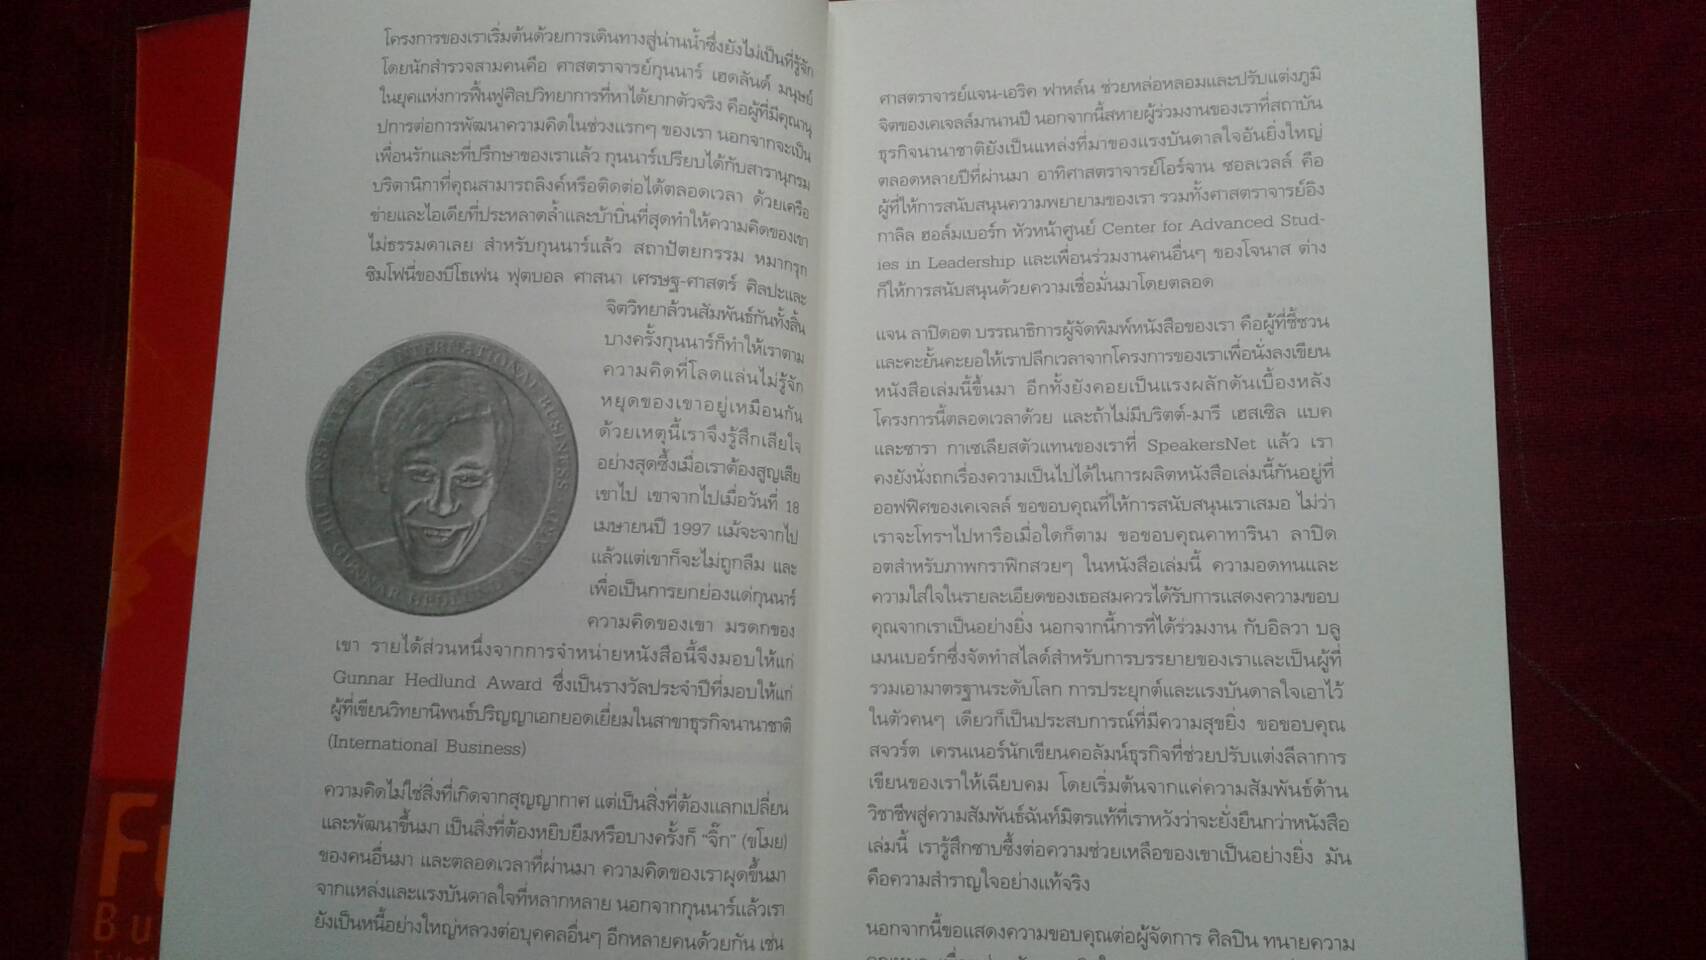 โครงการของเราเริ่มต้นด้วยการเดินทางสู่น่านน้ำซึ่งยังไม่เป็นที่รู้จัก
โดยนักสำรวจสามคนคือ ศาสตราจารย์กุนนาร์ เฮดลันด์ มนุษย์
ในยุคแห่งการฟื้นฟูศิลปวิทยาการที่หาได้ยากตัวจริง คือผู้ที่มีคุณานุ
ปการต่อการพัฒนาความคิดในช่วงแรกๆ ของเรา นอกจากจะเป็น
เพื่อนรักและที่ปรึกษาของเราแล้ว กุนนาร์เปรียบได้กับสารานุกรม
บริตานิกาที่คุณสามารถลิงค์หรือติดต่อได้ตลอดเวลา ด้วยเครือ
ข่ายและไอเดียที่ประหลาดล้ำและบ้าบิ่นที่สุดทำให้ความคิดของเขา
ไม่ธรรมดาเลย สำหรับกุนนาร์แล้ว สถาปัตยกรรม หมากรุก
ซิมโฟนี่ของบีโธเฟน ฟุตบอล ศาสนา เศรษฐ-ศาสตร์ ศิลปะและ
จิตวิทยาล้วนสัมพันธ์กันทั้งสิ้น
บางครั้งกุนนาร์ก็ทำให้เราตาม
ความคิดที่โลดแล่นไม่รู้จัก
หยุดของเขาอยู่เหมือนกัน
ด้วยเหตุนี้เราจึงรู้สึกเสียใจ
อย่างสุดซึ้งเมื่อเราต้องสูญเสีย
เขาไป เขาจากไปเมื่อวันที่ 18
เมษายนปี 1997 แม้จะจากไป
แล้วแต่เขาก็จะไม่ถูกลืม และ
เพื่อเป็นการยกย่องแด่กุนนาร์
ความคิดของเขา มรดกของ
เขา รายได้ส่วนหนึ่งจากการจำหน่ายหนังสือนี้จึงมอบให้แก่
Gunnar Hedlund Award ซึ่งเป็นรางวัลประจำปีที่มอบให้แก่
ผู้ที่เขียนวิทยานิพนธ์ปริญญาเอกยอดเยี่ยมในสาขาธุรกิจนานาชาติ
(International Business)
INSTITUTE INTERNATIONAL BUSINESS
THE GUNNAR HEDLUND AWARD
ความคิดไม่ใช่สิ่งที่เกิดจากสุญญากาศ แต่เป็นสิ่งที่ต้องแลกเปลี่ยน
และพัฒนาขึ้นมา เป็นสิ่งที่ต้องหยิบยืมหรือบางครั้งก็ "จิ๊ก" (ขโมย)
ของคนอื่นมา และตลอดเวลาที่ผ่านมา ความคิดของเราผุดขึ้นมา
จากแหล่งและแรงบันดาลใจที่หลากหลาย นอกจากกุนนาร์แล้วเรา
ยังเป็นหนี้อย่างใหญ่หลวงต่อบุคคลอื่นๆ อีกหลายคนด้วยกัน เช่น
ศาสตราจารย์แจน-เอริค ฟาห์ล์น ช่วยหล่อหลอมและปรับแต่งภูมิ
จิตของเคเจลล์มานานปี นอกจากนี้สหายผู้ร่วมงานของเราที่สถาบัน
ธุรกิจนานาชาติยังเป็นแหล่งที่มาของแรงบันดาลใจอันยิ่งใหญ่
ตลอดหลายปีที่ผ่านมา อาทิศาสตราจารย์โอร์จาน ซอลเวลล์ คือ
ผู้ที่ให้การสนับสนุนความพยายามของเรา รวมทั้งศาสตราจารย์อิง
กาลิล ฮอล์มเบอร์ก หัวหน้าศูนย์ Center for Advanced Stud-
ies in Leadership และเพื่อนร่วมงานคนอื่นๆ ของโจนาส ต่าง
ก็ให้การสนับสนุนด้วยความเชื่อมั่นมาโดยตลอด
แจน ลาปิดอต บรรณาธิการผู้จัดพิมพ์หนังสือของเรา คือผู้ที่ชี้ชวน
และคะยั้นคะยอให้เราปลีกเวลาจากโครงการของเราเพื่อนั่งลงเขียน
หนังสือเล่มนี้ขึ้นมา อีกทั้งยังคอยเป็นแรงผลักดันเบื้องหลัง
โครงการนี้ตลอดเวลาด้วย และถ้าไม่มีบริตต์-มารี เฮสเซิล แบค
และซารา กาเซเลียสตัวแทนของเราที่ SpeakersNet แล้ว เรา
คงยังนั่งถกเรื่องความเป็นไปได้ในการผลิตหนังสือเล่มนี้กันอยู่ที่
ออฟฟิศของเคเจลล์ ขอขอบคุณที่ให้การสนับสนุนเราเสมอ ไม่ว่า
เราจะโทรฯไปหารือเมื่อใดก็ตาม ขอขอบคุณคาทารินา ลาปิด
อตสำหรับภาพกราฟิกสวยๆ ในหนังสือเล่มนี้ ความอดทนและ
ความใส่ใจในรายละเอียดของเธอสมควรได้รับการแสดงความขอบ
คุณจากเราเป็นอย่างยิ่ง นอกจากนี้การที่ได้ร่วมงาน กับอิลวา บลู
เมนเบอร์กซึ่งจัดทำสไลด์สำหรับการบรรยายของเราและเป็นผู้ที่
รวมเอามาตรฐานระดับโลก การประยุกต์และแรงบันดาลใจเอาไว้
ในตัวคนๆ เดียวก็เป็นประสบการณ์ที่มีความสุขยิ่ง ขอขอบคุณ
สจวร์ต เครนเนอร์นักเขียนคอลัมน์ธุรกิจที่ช่วยปรับแต่งลีลาการ
เขียนของเราให้เฉียบคม โดยเริ่มต้นจากแค่ความสัมพันธ์ด้าน
วิชาชีพสู่ความสัมพันธ์ฉันท์มิตรแท้ที่เราหวังว่าจะยั่งยืนกว่าหนังสือ
เล่มนี้ เรารู้สึกซาบซึ้งต่อความช่วยเหลือของเขาเป็นอย่างยิ่ง มัน
คือความสำราญใจอย่างแท้จริง
นอกจากนี้ขอแสดงความขอบคุณต่อผู้จัดการ ศิลปิน ทนายความ